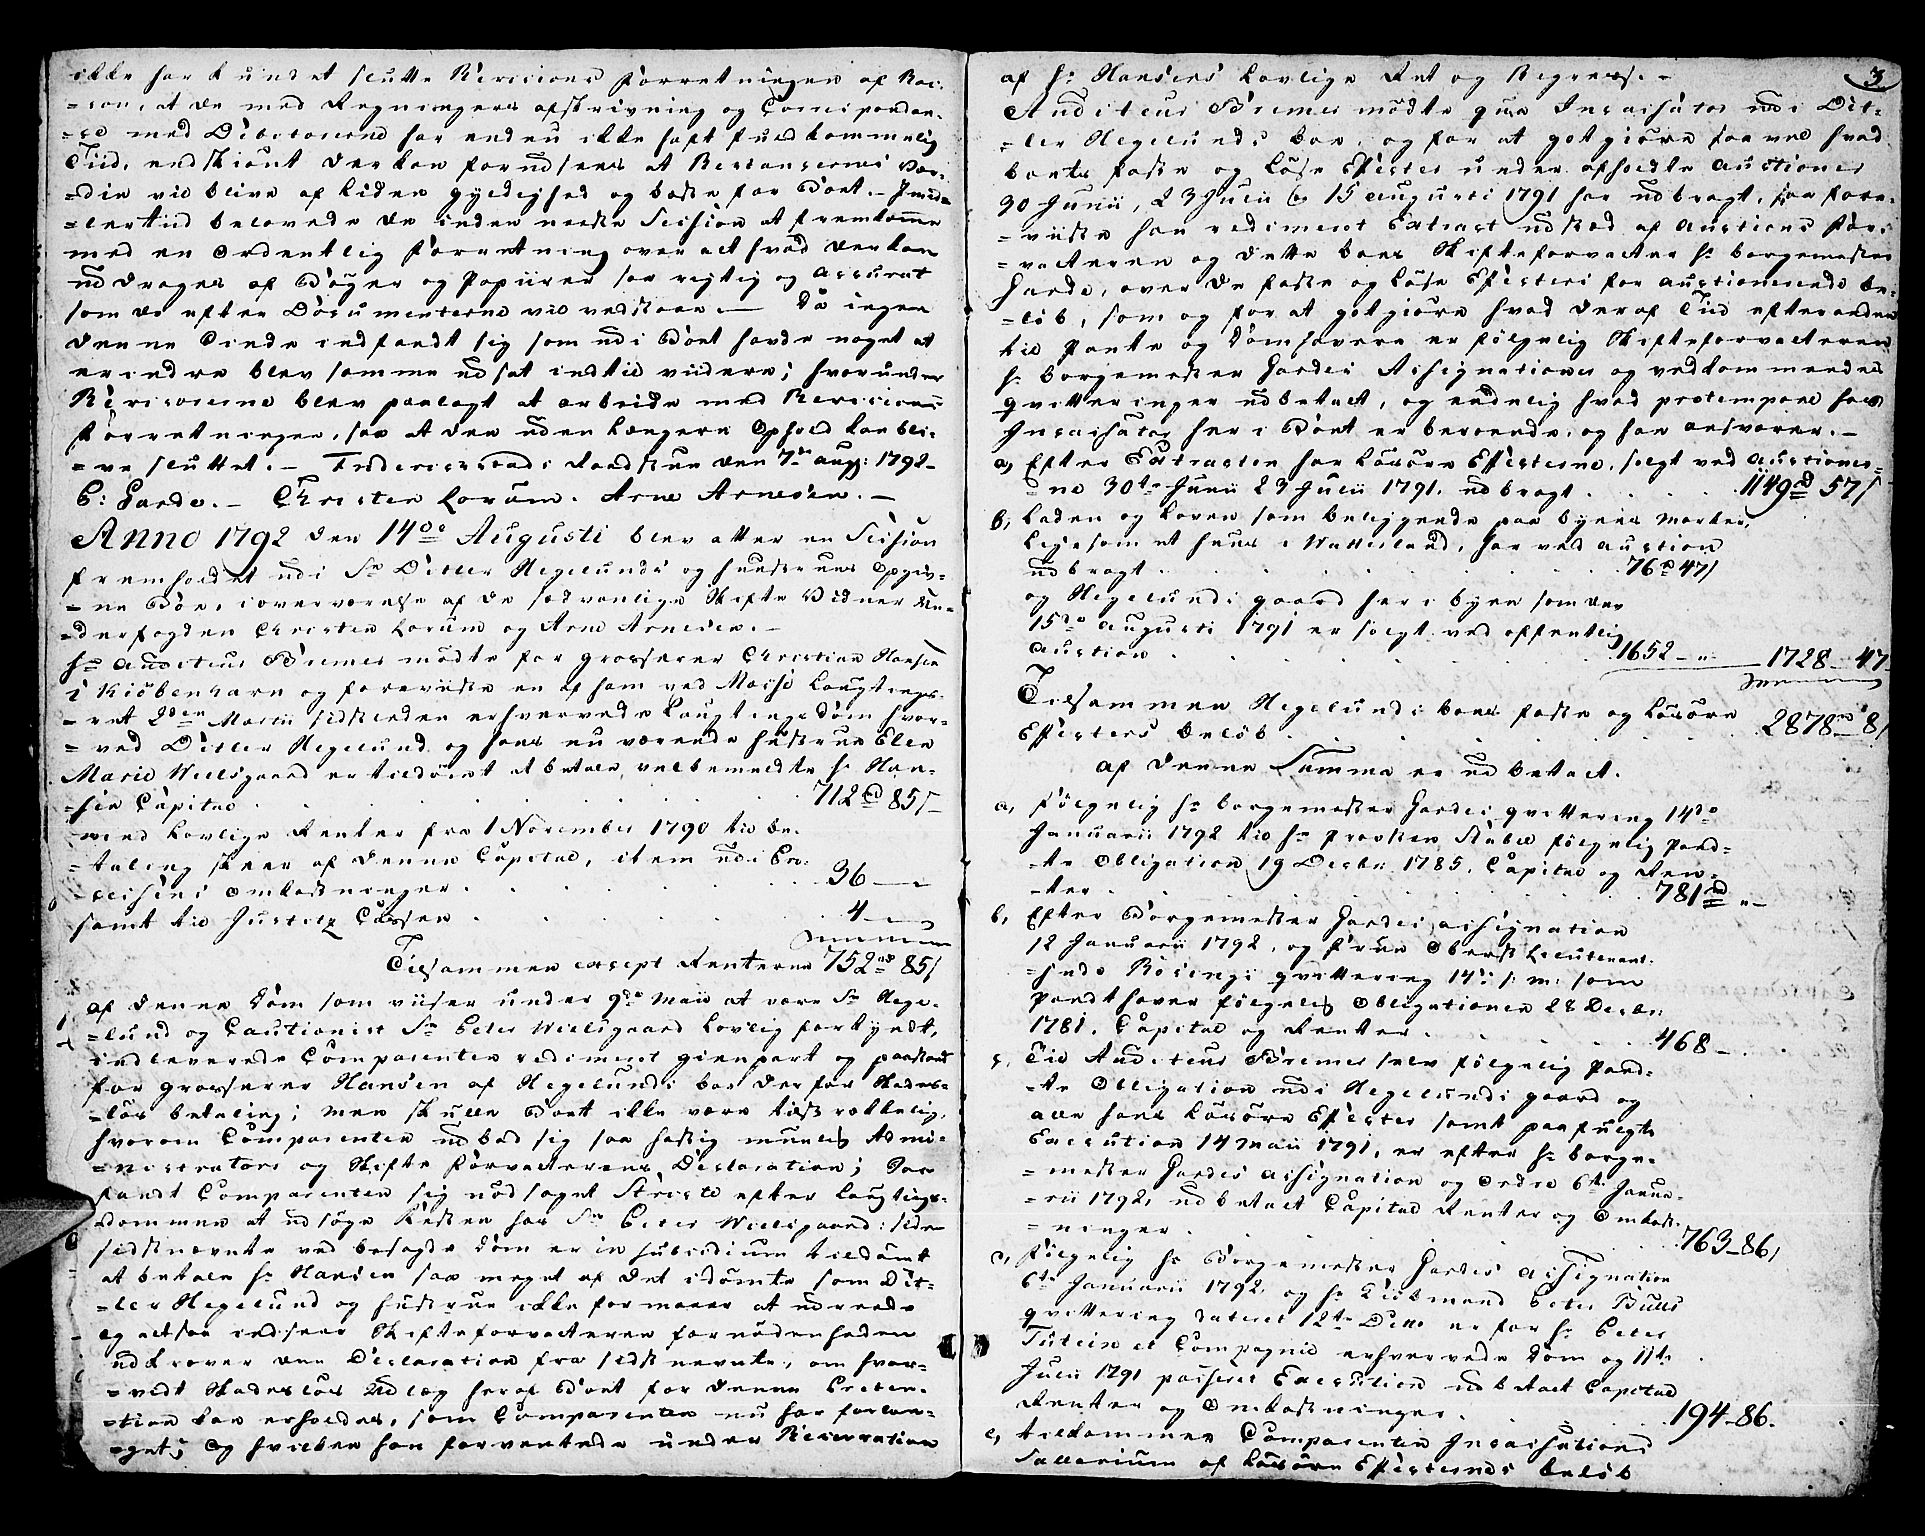 ikke har kundet slutte Revisions Forretningen af Rai-
=son, at de med Regningers afskrivning og Correspondan-
=ce med Debitorerne har endnu ikke haft fuldkommelig
Tiid, endskiönt der kan forudsees at Restancernes Vær-
=die vil blive af liden gyldighed og baade for Boet. - Imid=
=lertiid belovede de inden næste Session at fremkomme
med en ordentlig Forretning over alt hvad der kan
uddrages af Böger og Papiirer saa rigtig og accurat
som de efter Documenterne vil vedstaae. - Da ingen
denne Sinde indfandt sig som udi Boet havde noget at
erindre blev samme udsat indtil viidere; hvorunder
Revisorerne blev paalagt at arbeide med Revisions
Forretningen, saa at den uden længere Ophold kan bli-
=ve sluttet. - Friderichstads Raadstue den 7de aug: 1792 -
C: Garde. - Christen Lorum. Arne Arnesen. -
Anno 1792 den 14de Augusti blev atter en Session
fremholdet udi Sr Ditler Hegelunds og Hustrues Opgiv-
=ne Boe, i overværelse af de sædvanlige Skifte Vidner Un-
=derfogden Christen Lorum og Arne Arnesen. -
Hr Auditeur Bremer mödte for grosserer Christian Hansen
i Kiöbenhavn og foreviiste en af ham ved Mosse Laugtings-
=ret 2den Martii sidstleden erhvervede Laugtingsdom hvor-
=ved Ditler Hegelund og hans nu værende hustrue Elen
Marie Wielsgaard er tildömt at betale velbemeldte Hr Han-
=sen Capital . . . 712 rd 85 s
med Lovlige Renter fra 1 November 1790 til be-
=taling skeer af denne Capital, item udi Pro-
=cessens Omkostninger . . . 36 - "
samt til Justitz Cassen . . . 4 - "
Tilsammen except Renterne 752 rd 85 s
af denne Dom som viiser under 9de Maii at være Sr Hege-
=lund og Cautionist Sr Peter Wielsgaard Lovlig forkyndt,
indleverede Comparenten vedimeret gienpart og paastod
for grosserer Hansen af Hegelunds boe derfor Skades-
=lös betaling; men skulle Boet ikke være tilstrækkelig,
hvorom Comparenten udbad sig saa hastig mueligt Admi-
=nistrators og Skifte Forvalterens Declaration; Saa
fandt Comparenten sig nödsaget Stricte efter Laugtings-
dommen at udsöge Resten hos Sr Peter Wielsgaard: siden
sidstnevnte ved besagde dom er in subsidium tildömt
at betale Hr Hansen saa meget af det idömte som Dit-
=ler Hegelund og hustrue ikke formaaer at udrede
og altsaa indseer Skifteforvalteren fornödenheden
udkræver den Declaration fra sidstnevnte, om hvor-
=vidt Skadeslös Udlæg her af Boet for denne Preten-
=tion kan erholdes, som Comparenten nu har forlan-
=get; og hvilken han forventede under Reservation
3
af Hr Hansens Lovlige Ret og Regress. -
Auditeur Bremer mödte qua Incassator udi Dit-
=ler Hegelunds boe, og for at gotgiöre saavel hvad
boets faste og Löse Effecter under afholdte auctioner
30 Junii, 23 Julii & 15 Augusti 1791 har udbragt, saa fore-
=viiste han vedimeret Extract udsted af Auctions For-
=valteren og dette boes Skifteforvalter Hr borgemester
Garde, over de faste og Löse Effecters for auctionerede be-
=löb, som og for at gotgiöre hvad deraf Tiid efter anden
til Pante og domhavere er fölgelig Skifteforvalteren
Hr borgemester Gardes Assignationer og vedkommendes
qvitteringer udbetalt, og endelig hvad protempore hos
Incassator her i Boet er beroende, og han ansvarer. -
a, Efter Extracten har Lösöre Effecterne, solgt ved Auctioner-
=ne 30te Junii 23 Julii 1791, udbragt . . . 1149 rd 57 s
b, Laden og Loven som beliggende paa byens Marker,
ligesom et huus i Watterland, har ved auction
udbragt . . . 76 rd 47 s
og Hegelunds gaard her i byen som den
15de Augusti 1791 er solgt ved offentlig
Auction . . . 1652 - " 1728 - 47
Tilsammen Hegelunds boes faste og Lösöre
Effecters beløb . . . 2878 rd 8 s
af denne Summa er udbetalt.
a, Fölgelig Hr borgemester Gardes qvittering 14de
Januarii 1792 til Hr Provsten Stabel fölgelig Pand=
=te Obligation 19 Decbr: 1785, Capital og Ren-
=ter . . . 781 rd "-
b, Efter Borgemester Gardes assignation
12 Januarii 1792, og Frue Oberst Lieutenant-
=inde Rösings qvittering 14de s: m: som
Pandthaver fölgelig Obligationen 28 Decbr:
1781, Capital og Renter . . . 468 -
c, Til Auditeur Bremer selv fölgelig Pand-
=te Obligation udi Hegelunds gaard og
alle hans Lösöre Effecter samt paafulgte
Execution 14 Maii 1791, er efter Hr borge-
=mester Gardes assignation og Ordre 6te Janua-
=rii 1792, udbetalt Capital Renter og Omkost-
=ninger . . . 763 - 86 s
d, Fölgelig Hr Borgemester Gardes Assignation
6te Januarii 1792, og Hr Kiöbmand Peter Bulls
qvittering dateret 12te Dito er for Hr Peter
Tutein et Compagnie erhvervede Dom og 11te
Julii 1791 passeret Execution udbetalt Capital
Renter og Omkostninger . . . 194 - 86.
e, tilkommer Comparenten Incassations
Sallarium af Lösöre Effecternes belöb